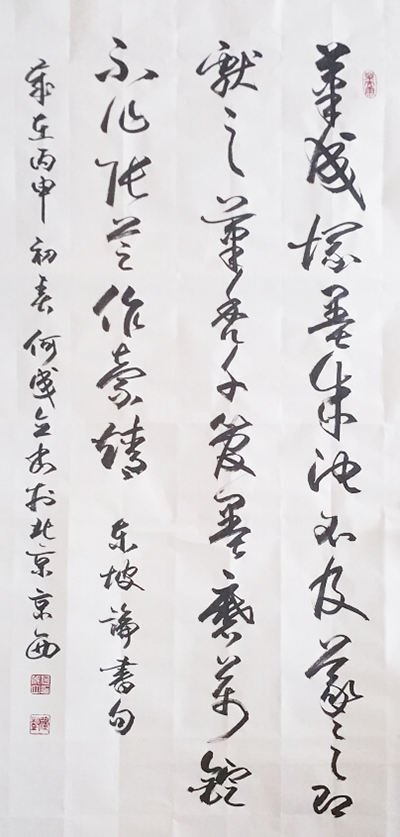 筆成塚墨成池不及羲之即
獻之筆禿千管墨磨萬錠
不作張芝作索靖 東坡論書句
歲在丙申初春何成立書於北京京西